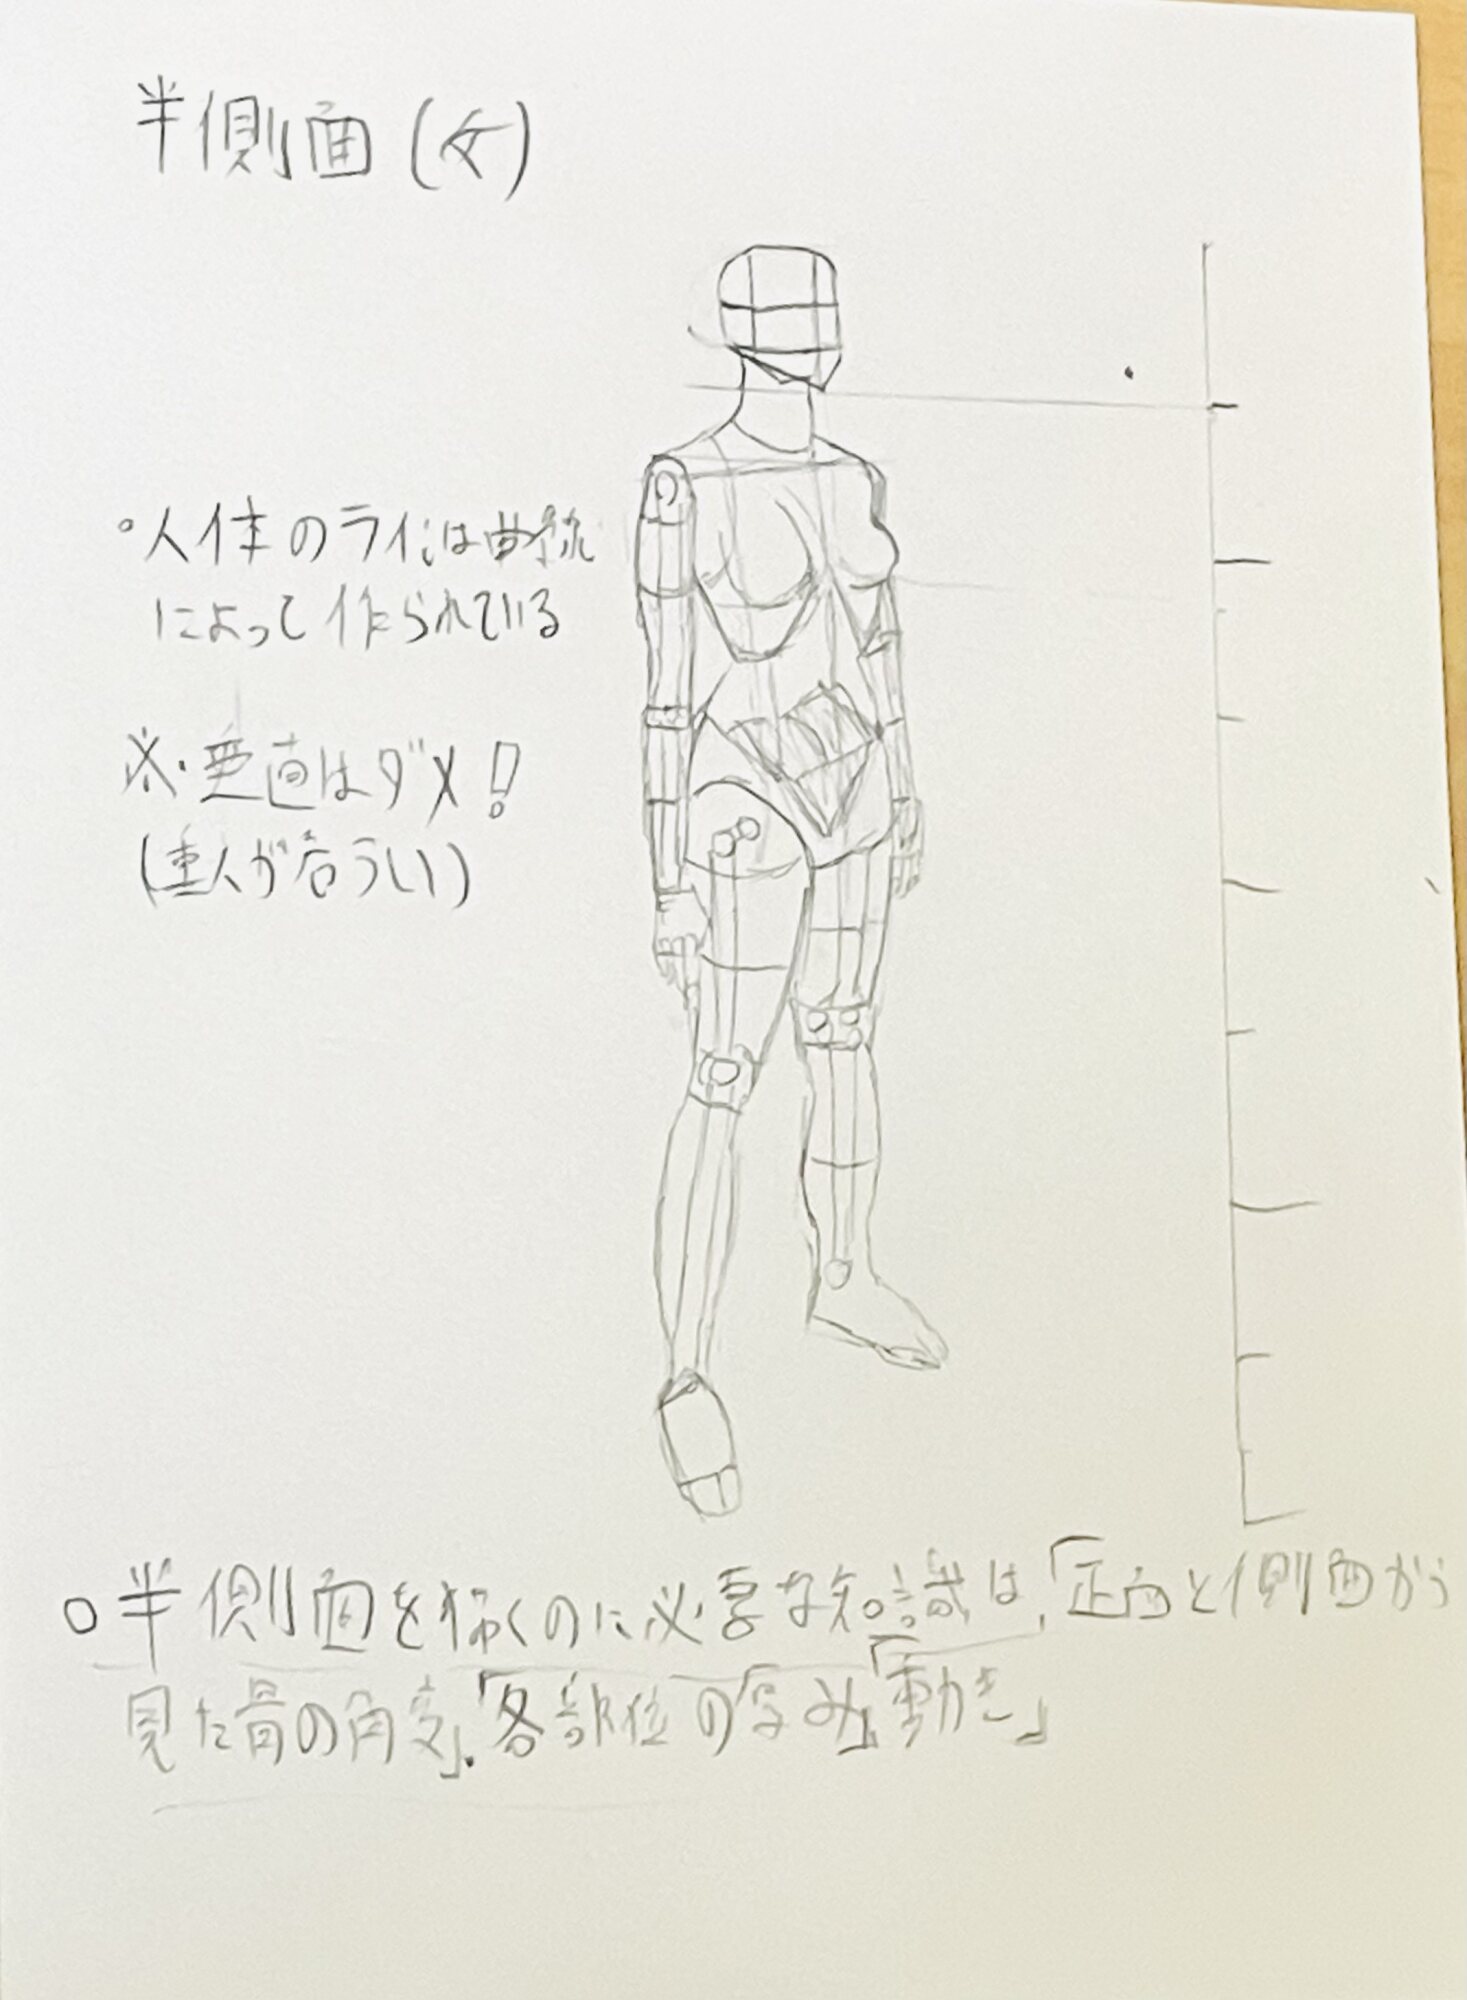 半側面(女)
・人体のラインは曲線
によって作られている
※・垂直はダメ!
(重心が危うい)
○半側面を描くのに必要な知識は、「正面と側面から
見た骨の角度」、「各部位の厚み」「動き」